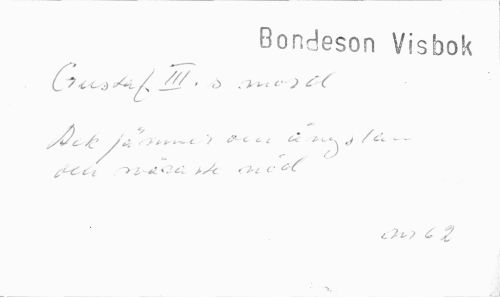 Bondeson Visbok
Gustaf III. s mord
Ack jämmer och ängslan
och svåraste nöd
nr 62